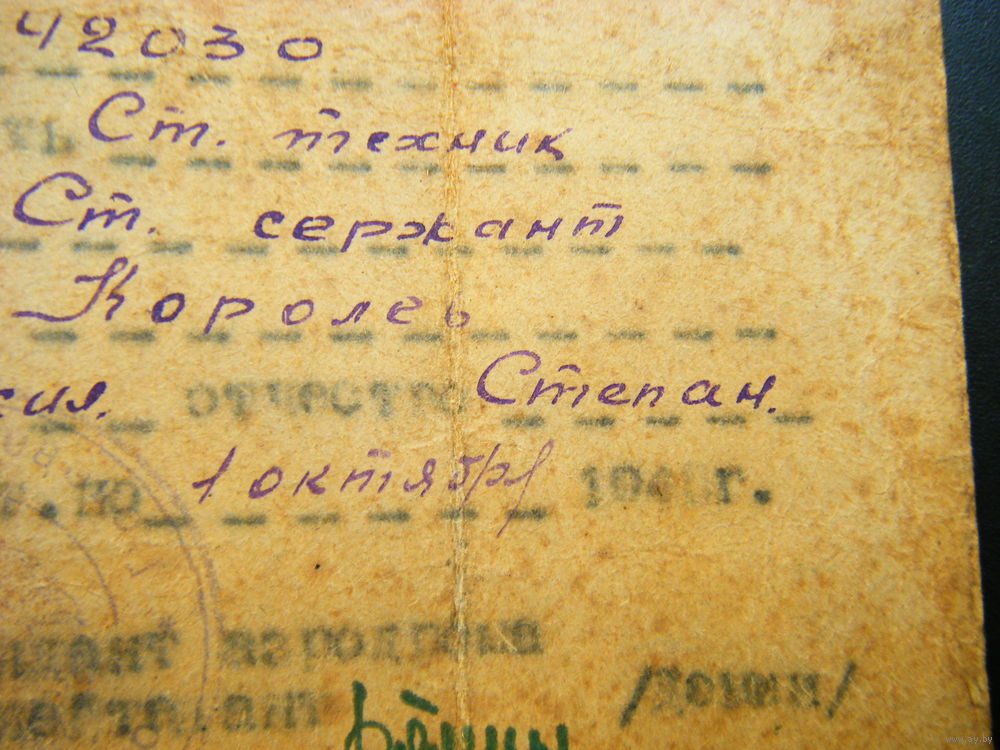 42030
ть Ст. техник
Ст. сержант
Королев
сия. отчество Степан.
т. по 1 октября 194 г.
ендант аэродрома
/Домин/
www.ay.by